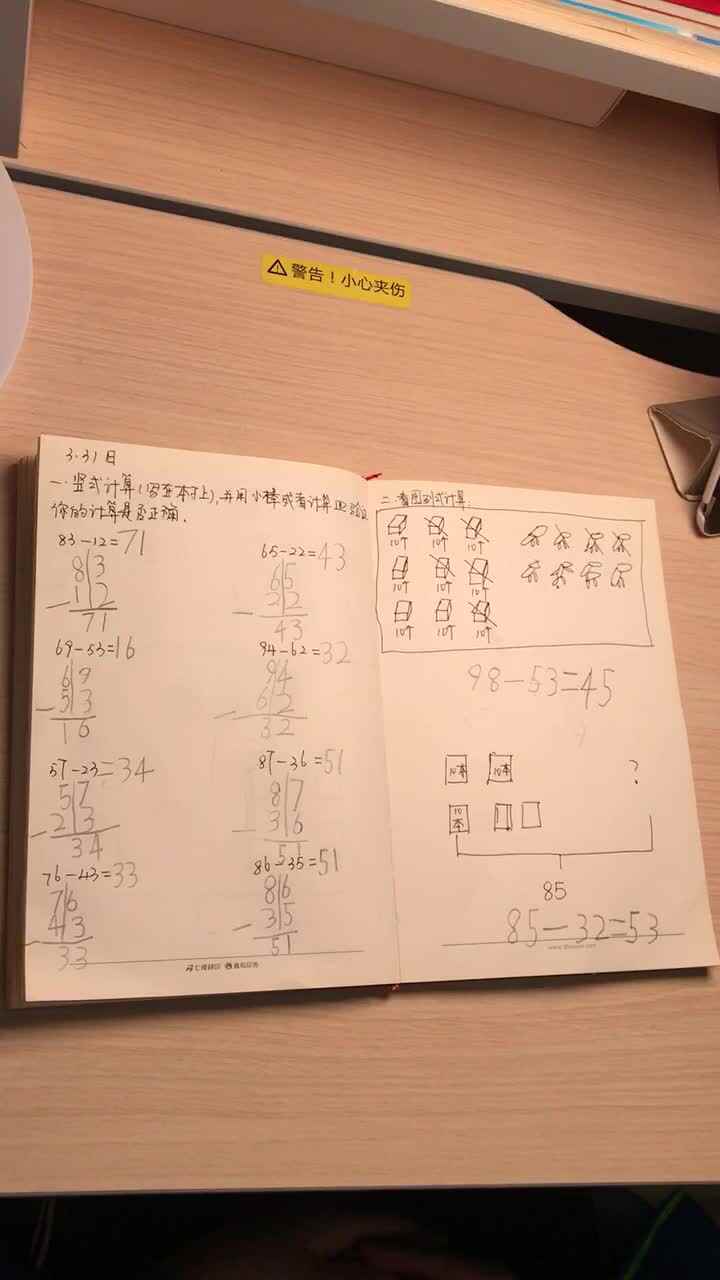 警告！小心夹伤
3.31日
一.竖式计算(写在本子上),并用小棒或者计算器验证
你的计算是否正确.
83-12=71
83
-12
71
65-22=43
65
-22
43
69-53=16
69
-53
16
94-62=32
94
-62
32
57-23=34
57
-23
34
87-36=51
87
-36
51
76-43=33
76
-43
33
86-35=51
86
-35
51
二.看图列式计算.
10个 10个 10个
10个 10个 10个
10个 10个 10个
98-53=45
10本 10本 ?
10本
85
85-32=53